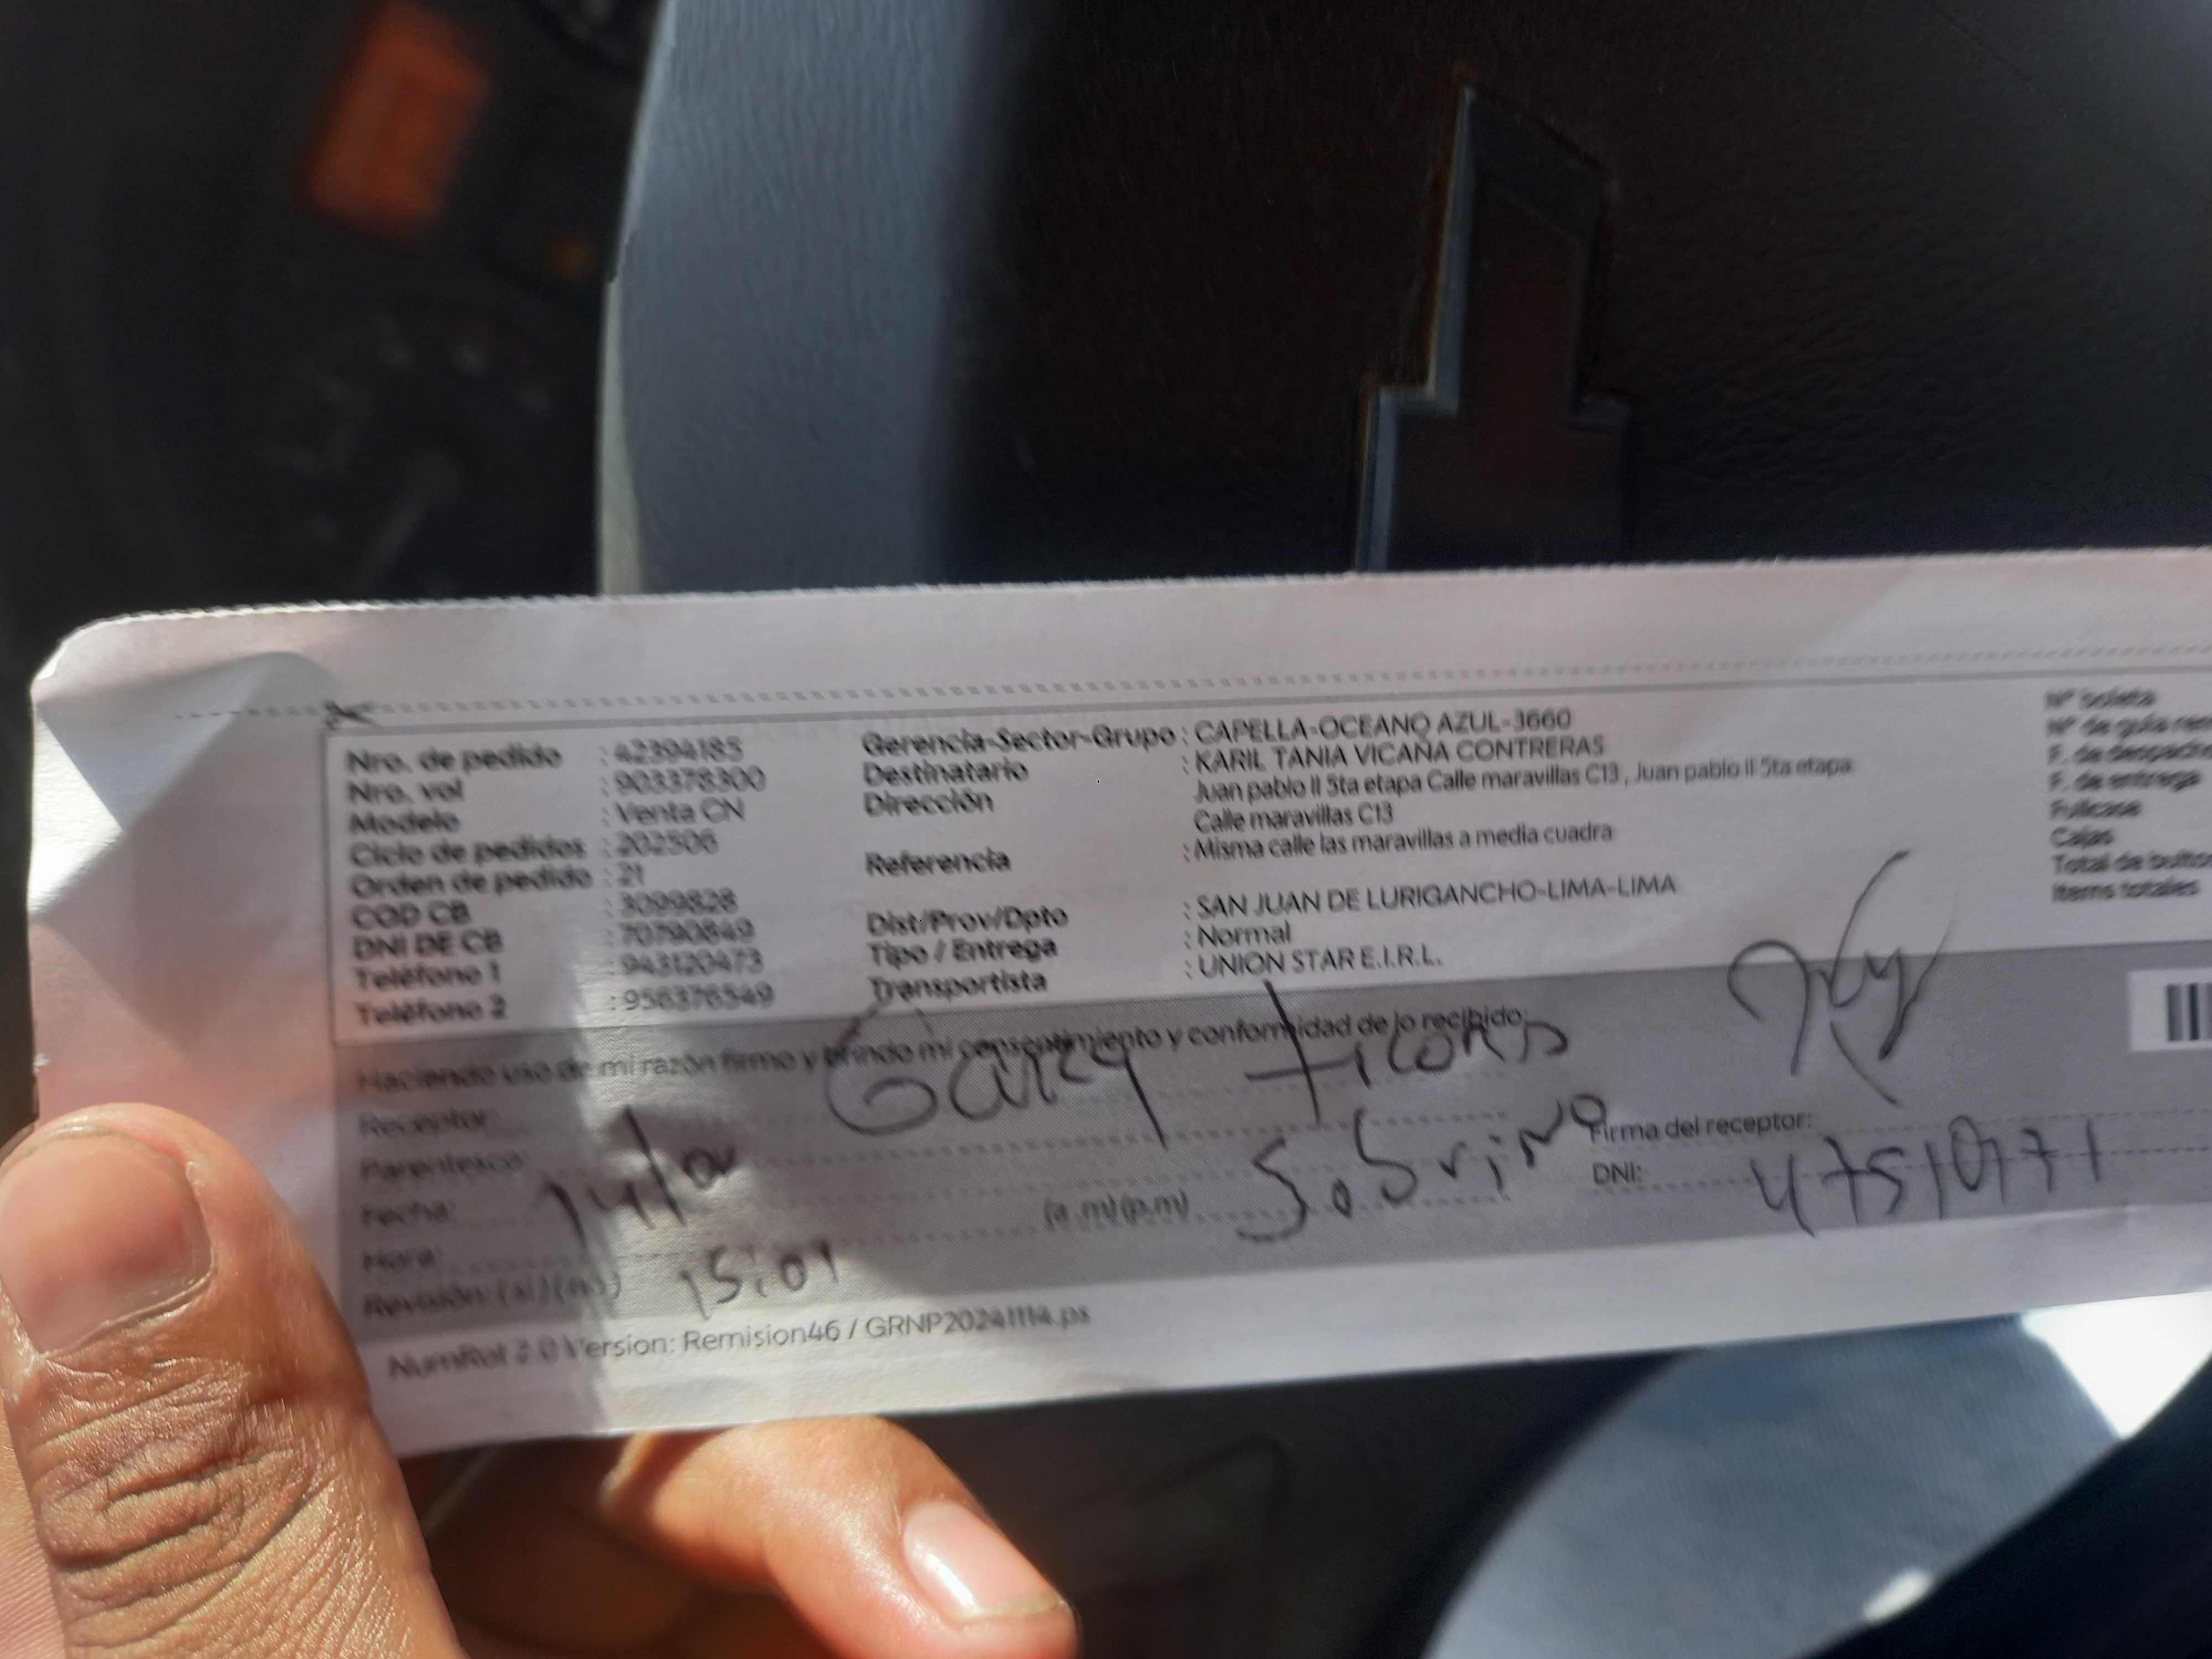 Nro. de pedido : 42394185
Nro. vol : 903378300
Modelo : Venta CN
Ciclo de pedidos : 202506
Orden de pedido : 21
COD CB : 3099828
DNI DE CB : 70790849
Teléfono 1 : 943120473
Teléfono 2 : 956376549
Gerencia-Sector-Grupo : CAPELLA-OCEANO AZUL-3660
Destinatario : KARIL TANIA VICAÑA CONTRERAS
Dirección Juan pablo II 5ta etapa Calle maravillas C13 , Juan pablo II 5ta etapa
Calle maravillas C13
Referencia : Misma calle las maravillas a media cuadra
Dist/Prov/Dpto : SAN JUAN DE LURIGANCHO-LIMA-LIMA
Tipo / Entrega : Normal
Transportista : UNION STAR E.I.R.L.
Nº boleta
Nº de guía
F. de despacho
F. de entrega
Fullcase
Cajas
Total de
Items totales
Haciendo uso de mi razón firmo y brindo mi consentimiento y conformidad de lo recibido:
Receptor:
Parentesco: Sobrino
Fecha:
Hora: (a .m)(p.m)
Revisión: (si)(no) 15:01
Firma del receptor:
DNI:
NumRot 2.0 Version: Remision46 / GRNP20241114.ps